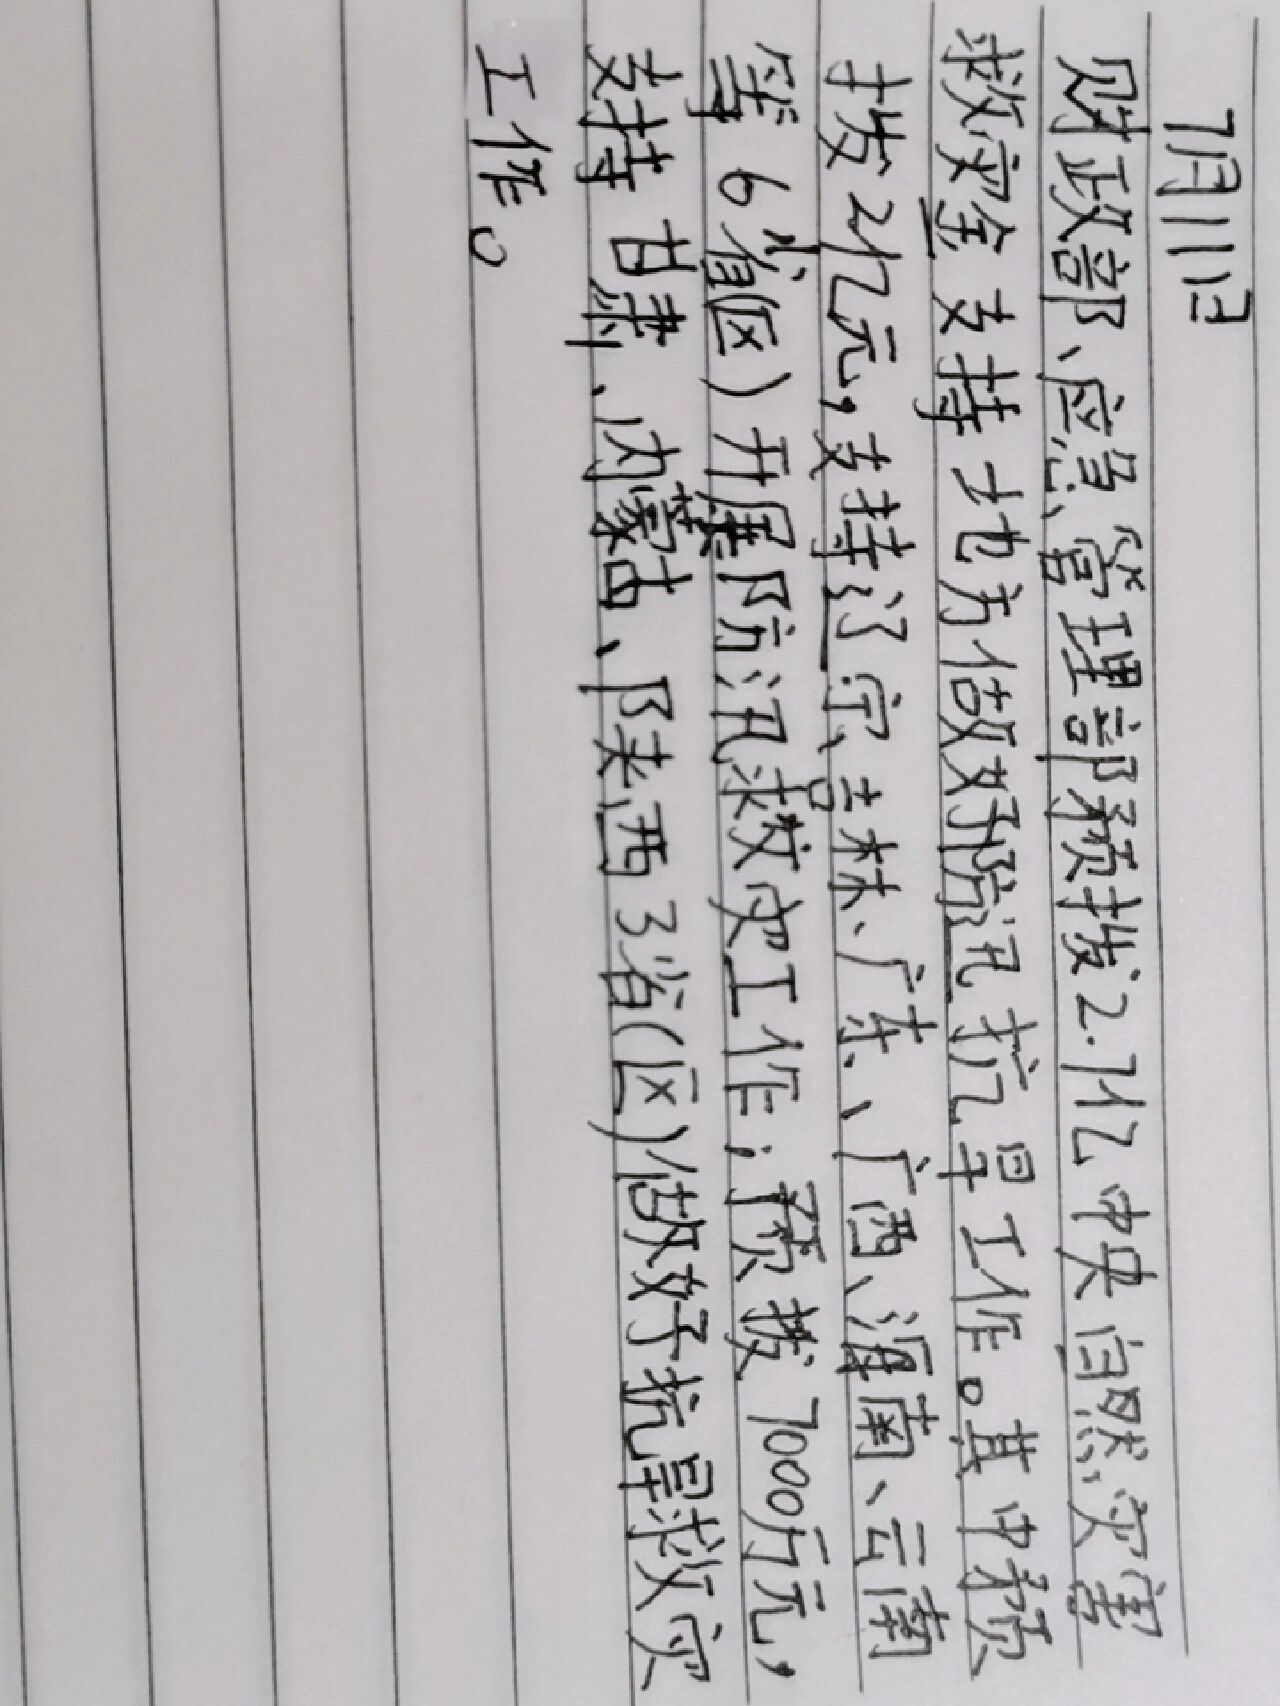 7月11日
财政部、应急管理部预拨2.1亿中央自然灾害
救灾金支持地方做好防汛抗旱工作。其中预
拨2亿元,支持辽宁、吉林、广东、广西、海南、云南
等6省(区)开展防汛救灾工作;预拨7000万元,
支持甘肃、内蒙古、陕西3省(区)做好抗旱救灾
工作。